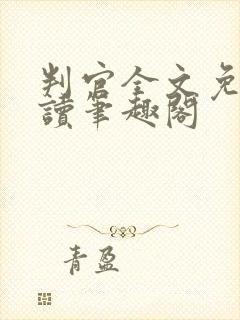 判官全文免
讀筆趣閣
青盈